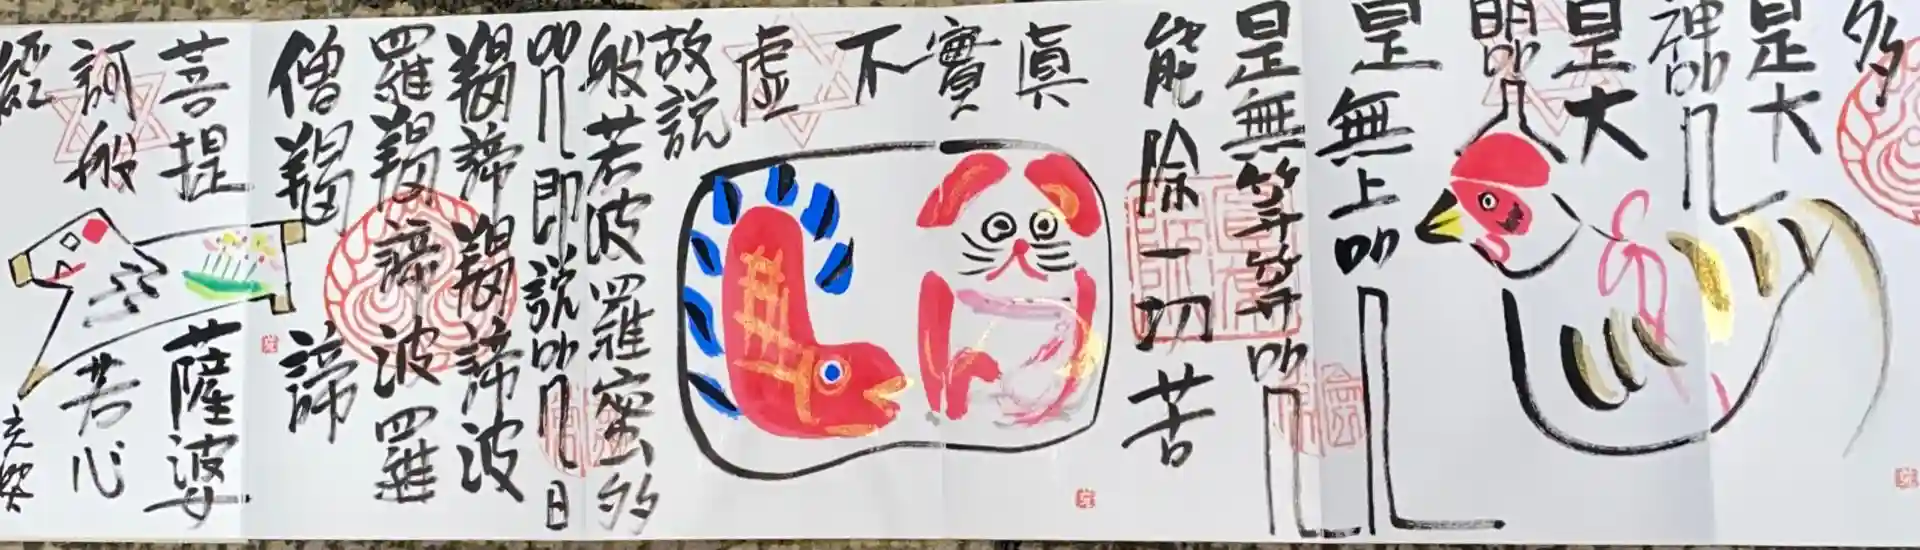 多
是大
神呪
是大
明呪
是無上呪
是無等等呪
能除一切苦
真實不虛
故説
般若波羅蜜多
呪即説呪曰
羯諦羯諦波
羅羯諦波羅
僧羯諦
菩提薩婆
訶般若心
經